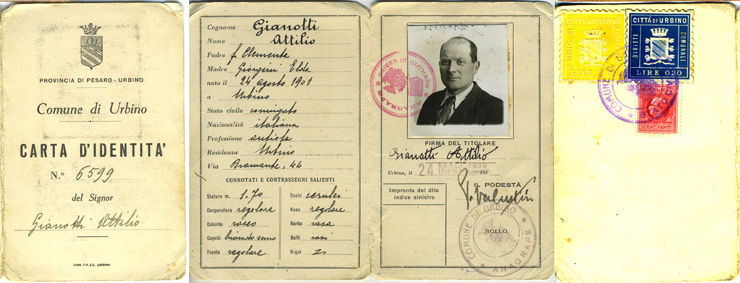 PROVINCIA DI PESARO - URBINO
Comune di Urbino
CARTA D'IDENTITA'
N.º 6599
del Signor
Gianotti Attilio
Cognome Gianotti
Nome Attilio
Padre f. Clemente
Madre Giorgini Elde
nato il 24 agosto 1901
a Urbino
Stato civile coniugato
Nazionalità italiana
Professione autista
Residenza Urbino
Via Bramante, 44
CONNOTATI E CONTRASSEGNI SALIENTI
Statura m. 1.70
Corporatura regolare
Colorito roseo
Capelli
Fronte regolare
Occhi cerulei
Naso regolare
Barba rasa
Baffi rasi
Segni
FIRMA DEL TITOLARE
Gianotti Attilio
Urbino, li 24 MAR
IL PODESTÀ
Impronta del dito
indice sinistro
BOLLO
COMUNE DI URBINO
ANAGRAFE
CITTÀ DI URBINO
DIRITTI
COMUNALI
LIRE 0.30
COMUNE DI URBINO